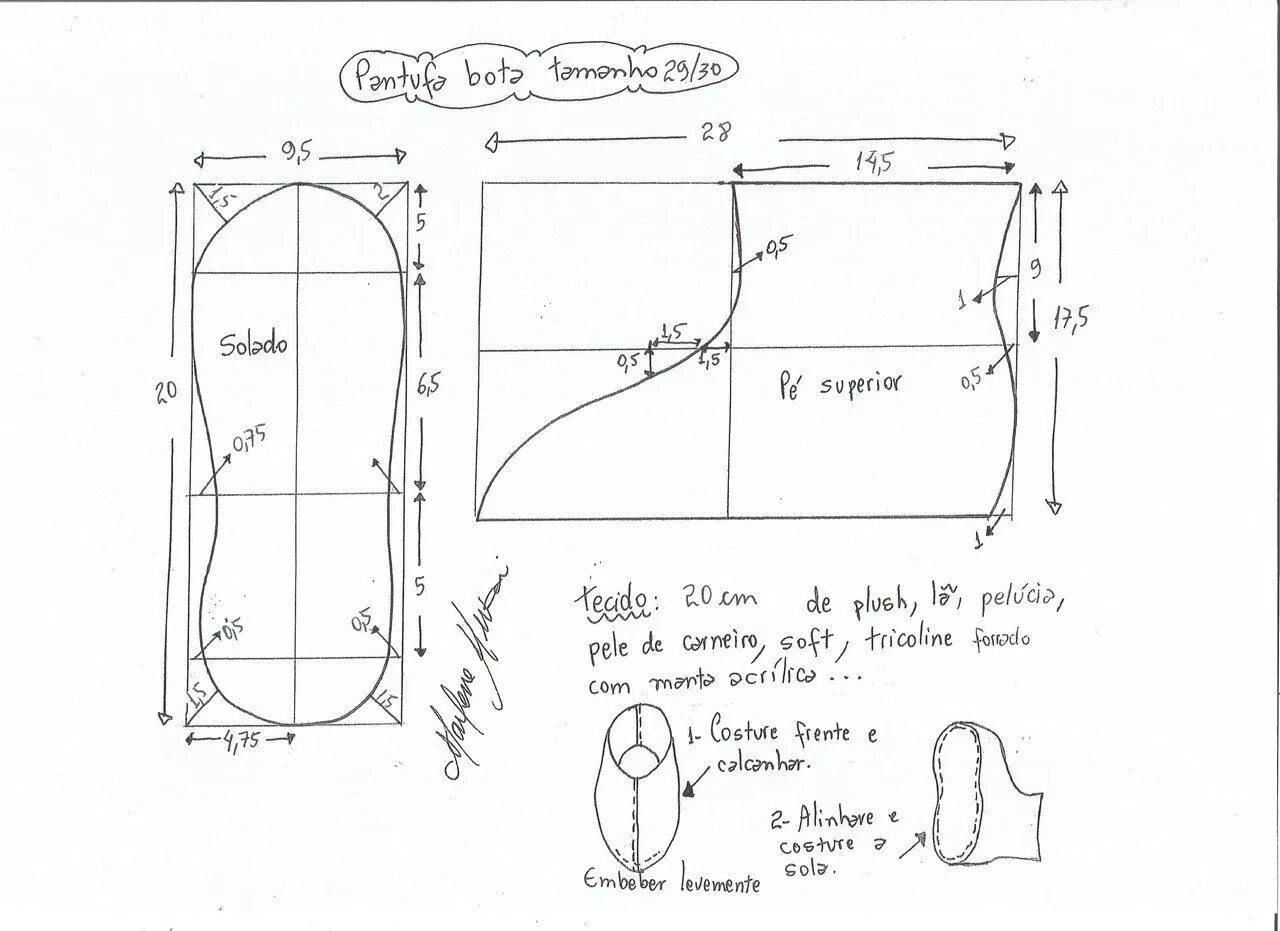 Pantufa bota tamanho 29/30
28
9,5
14,5
1,5
2
5
0,5
9
1
17,5
Solado
1,5
0,5
1,5
Pé superior
0,5
20
6,5
0,75
1
5
0,5
0,5
1,5
1,5
4,75
tecido: 20 cm de plush, lã, pelúcia,
pele de carneiro, soft, tricoline forrado
com manta acrílica ...
1- Costure frente e
calcanhar.
2- Alinhave e
costure a
sola.
Embeber levemente